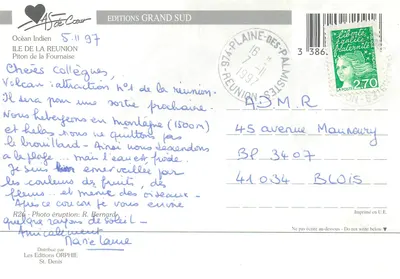 As de Cœur
EDITIONS GRAND SUD
Océan Indien
5.11 97
ILE DE LA REUNION
Piton de la Fournaise
Chères collègues,
Volcan: attraction n°1 de la réunion.
Il sera pour une sortie prochaine.
Nous hébergeons en montagne (1500m)
et hélas nous ne quittons pas
le brouillard. Ainsi nous descendons
à la plage, mais l'eau est froide.
Je suis émerveillée par
les couleurs des fruits, des
fleurs et même des oiseaux.
Après ce cor je vous envoie
quelque rayons de soleil.
Amicalement
R26 - Photo éruption: R. Benard
Distribué par
Les Editions ORPHIE
St. Denis
3 386
PLAINE-DES-PALMISTES
REUNION
liberté
égalité
fraternité
2,70
ADMR
45 avenue Maunoury
BP 3407
41034 BLOIS
Imprimé en U.E.
Ne pas écrire au-dessous - Do not write below